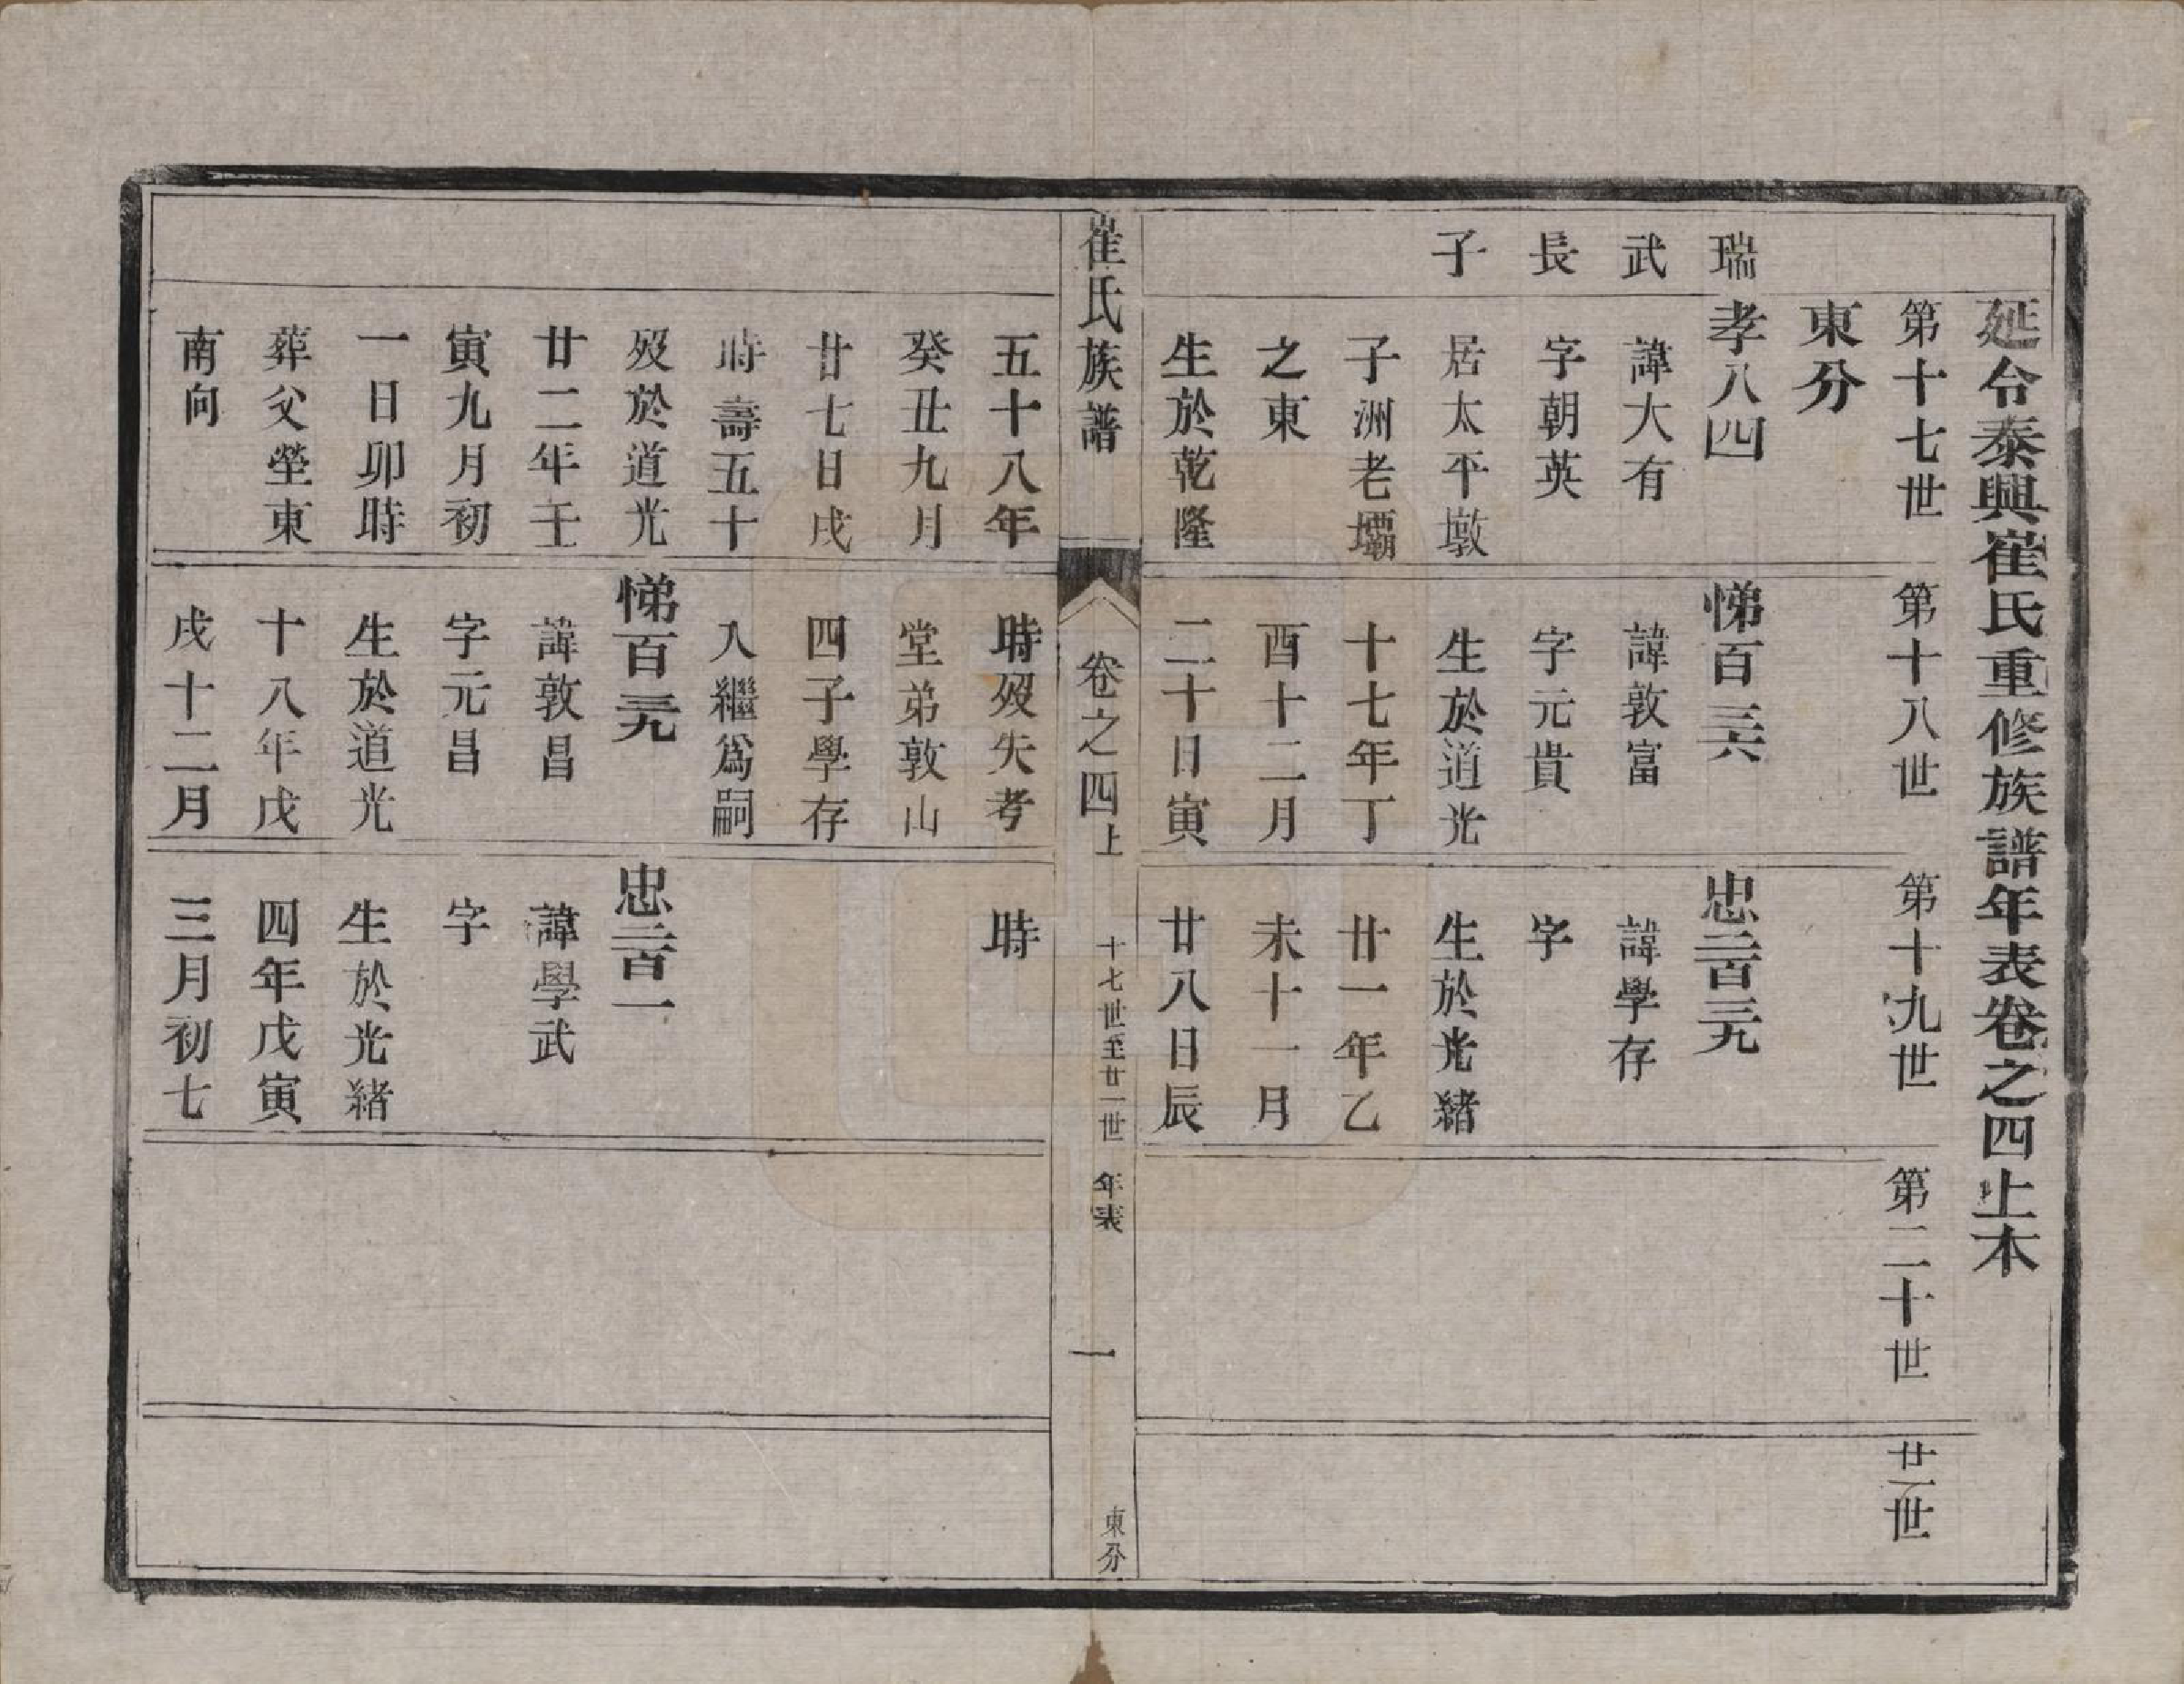 延令泰興崔氏重修族譜年表卷之四上本
第十七世
第十八世
第十九世
第二十世
廿一世
東分
瑞
武
長
子
孝八四
諱大有
字朝英
居太平墩
子洲老壩
之東
生於乾隆
悌百三六
諱敦富
字元貴
生於道光
十七年丁
酉十二月
二十日寅
忠二百三元
諱學存
字
生於光緒
廿一年乙
未十一月
廿八日辰
崔氏族譜
卷之四上
十七世至廿一世
年表
一
東分
五十八年
癸丑九月
廿七日戌
時壽五十
歿於道光
廿二年壬
寅九月初
一日卯時
葬父塋東
南向
時歿失考
堂弟敦山
四子學存
入繼爲嗣
悌百三元
諱敦昌
字元昌
生於道光
十八年戊
戌十二月
時
忠二百一
諱學武
字
生於光緒
四年戊寅
三月初七